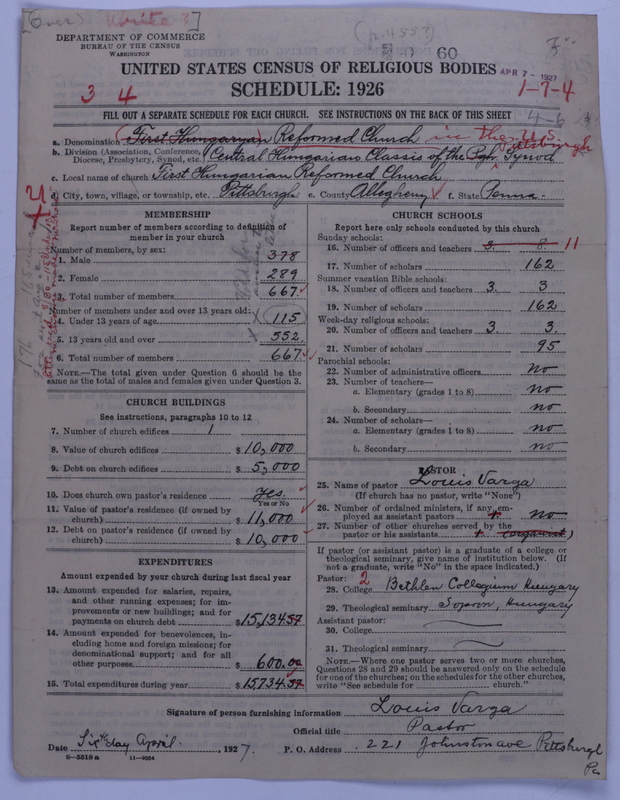 [Over) write 3]
(p. 4553)
DEPARTMENT OF COMMERCE
BUREAU OF THE CENSUS
WASHINGTON
60
APR 7 - 1927
UNITED STATES CENSUS OF RELIGIOUS BODIES
1-7-4
SCHEDULE: 1926
3 4
FILL OUT A SEPARATE SCHEDULE FOR EACH CHURCH. SEE INSTRUCTIONS ON THE BACK OF THIS SHEET
4-6
a. Denomination (First Hungaryan) Reformed Church in the U.S.
b. Division (Association, Conference, Diocese, Presbytery, Synod, etc.) Central Hungarians Classis of the Pgh. Synod
Pittsburgh
c. Local name of church First Hungarian Reformed Church
d. City, town, village, or township, etc. Pittsburgh e. County Allegheny f. State Penna.
MEMBERSHIP
Report number of members according to definition of
member in your church
Number of members, by sex:
1. Male 378
2. Female 289
3. Total number of members 667
Number of members under and over 13 years old:
4. Under 13 years of age (115)
5. 13 years old and over 552
6. Total number of members 667
NOTE.—The total given under Question 6 should be
same as the total of males and females given under Question 3.
CHURCH BUILDINGS
See instructions, paragraphs 10 to 12
7. Number of church edifices 1
8. Value of church edifices $ 10,000
9. Debt on church edifices $ 5,000
10. Does church own pastor's residence yes.
Yes or No
11. Value of pastor's residence (if owned by
church) $ 11,000
12. Debt on pastor's residence (if owned by
church) $ 10,000
EXPENDITURES
Amount expended by your church during last fiscal year
13. Amount expended for salaries, repairs,
and other running expenses; for im-
provements or new buildings; and for
payments on church debt $ 15,134.57
14. Amount expended for benevolences, in-
cluding home and foreign missions; for
denominational support; and for all
other purposes $ 600.00
15. Total expenditures during year $ 15,734.57
CHURCH SCHOOLS
Report here only schools conducted by this church
Sunday schools:
16. Number of officers and teachers 3. 8. 11
17. Number of scholars 162
Summer vacation Bible schools:
18. Number of officers and teachers 3. 3
19. Number of scholars 162
Week-day religious schools:
20. Number of officers and teachers 3. 3.
21. Number of scholars 95
Parochial schools:
22. Number of administrative officers no
23. Number of teachers—
a. Elementary (grades 1 to 8) no
b. Secondary no
24. Number of scholars—
a. Elementary (grades 1 to 8) no
b. Secondary no
PASTOR
25. Name of pastor Louis Varga
(If church has no pastor, write "None")
26. Number of ordained ministers, if any, em-
ployed as assistant pastors no
27. Number of other churches served by the
pastor or his assistants
If pastor (or assistant pastor) is a graduate of a college or
theological seminary, give name of institution below. (If
not a graduate, write "No" in the space indicated.)
Pastor: 2
28. College Bethlen Collegium Hungary
29. Theological seminary Sopron, Hungary
Assistant pastor:
30. College
31. Theological seminary
NOTE.—Where one pastor serves two or more churches,
Questions 28 and 29 should be answered only on the schedule
for one of the churches; on the schedules for the other churches,
write "See schedule for church."
Signature of person furnishing information Louis Varga
Official title Pastor
Date Sixth day April. 1927. P. O. Address 221 Johnston ave Pittsburgh
Pa
8-5310 a 11-9034